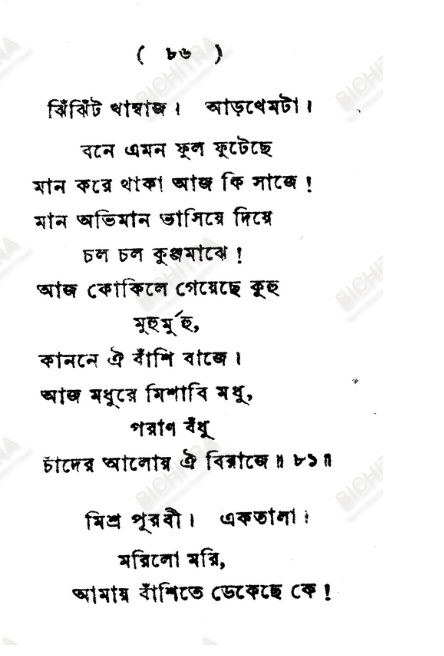 ( ৮৬ )
ঝিঁঝিঁট খাম্বাজ। আড়খেমটা।
বনে এমন ফুল ফুটেছে
মান করে থাকা আজ কি সাজে!
মান অভিমান ভাসিয়ে দিয়ে
চল চল কুঞ্জমাঝে!
আজ কোকিলে গেয়েছে কুহু
মুহুর্মুহু,
কাননে ঐ বাঁশি বাজে।
আজ মধুরে মিশাবি মধু,
পরাণ বঁধু
চাঁদের আলোয় ঐ বিরাজে॥ ৮১॥
মিশ্র পূরবী। একতালা।
মরিলো মরি,
আমায় বাঁশিতে ডেকেছে কে!
BICHITRA